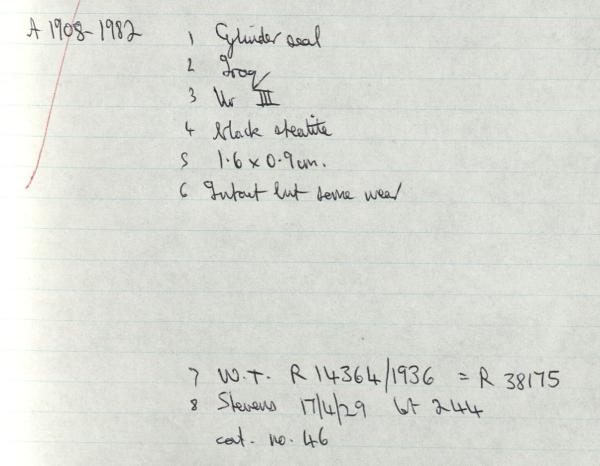 A 1908-1982
1 Cylinder seal
2 Iraq
3 Ur III
4 black steatite
5 1.6 x 0.9 cm.
6 Intact but some wear
7 W.T. R 14364/1936 = R 38175
8 Stevens 17/4/29 lot 244
cat. no. 46